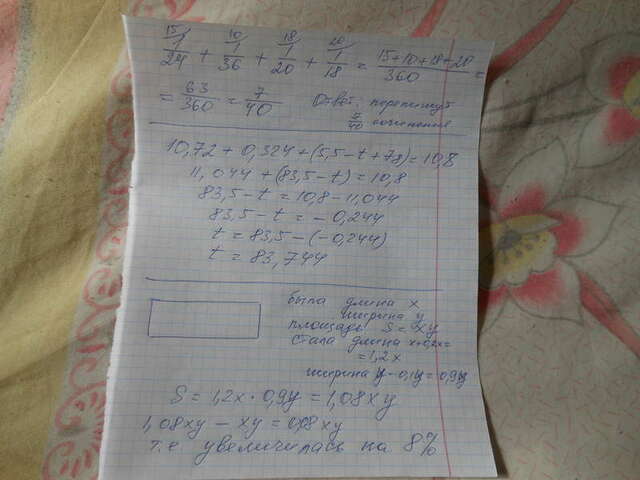 15/ 10/ 18/ 20/
1/24 + 1/36 + 1/20 + 1/18 = (15+10+18+20)/360 =
= 63/360 = 7/40 Ответ: перепишут
7/40 сочинения
10,72 + 0,324 + (5,5 - t + 78) = 10,8
11,044 + (83,5 - t) = 10,8
83,5 - t = 10,8 - 11,044
83,5 - t = - 0,244
t = 83,5 - (-0,244)
t = 83,744
была длина x
ширина y
площадь S = xy
стала длина x+0,2x=
= 1,2x
ширина y - 0,1y = 0,9y
S = 1,2x · 0,9y = 1,08xy
1,08xy - xy = 0,08xy
т.е. увеличилась на 8%